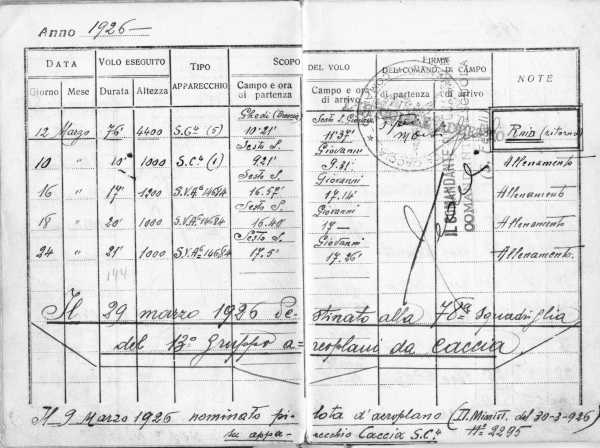 Anno 1926-
DATA VOLO ESEGUITO TIPO APPARECCHIO SCOPO DEL VOLO FIRME DEL COMAND. DI CAMPO NOTE
Giorno Mese Durata Altezza Campo e ora di partenza Campo e ora di arrivo di partenza di arrivo
Ghedi (Brescia) Sesto S. Giovanni
12 Marzo 76' 4400 10.21' 11.37' Raid (ritorno)
Sesto S. Giovanni
10 " 10' 1000 9.21 9.31 Allenamento
Sesto S. Giovanni
16 " 17' 1200 16.57' 17.14' Allenamento
Sesto S. Giovanni
18 " 20' 1000 16.40' 17- Allenamento
Sesto S. Giovanni
24 " 21' 1000 17.5' 17.26' Allenamento.
144
IL COMANDANTE
Il 29 marzo 1926 destinato alla 78ª Squadriglia
del 13º Gruppo aeroplani da caccia.
Il 9 Marzo 1926 nominato pilota d'aeroplano (D. Minist. del 30-3-926
su apparecchio Caccia S.C.4 Nº 2295